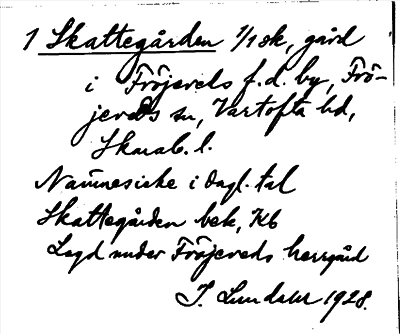 1 Skattegården 1/1 sk, gård
i Fröjereds f.d. by, Frö-
jereds sn, Vartofta hd,
Skarab. l.
Namnesicke i dagl. tal
Skattegården bek, Kb
Lagd under Fröjereds herrgård
J. Lundahl 1928.